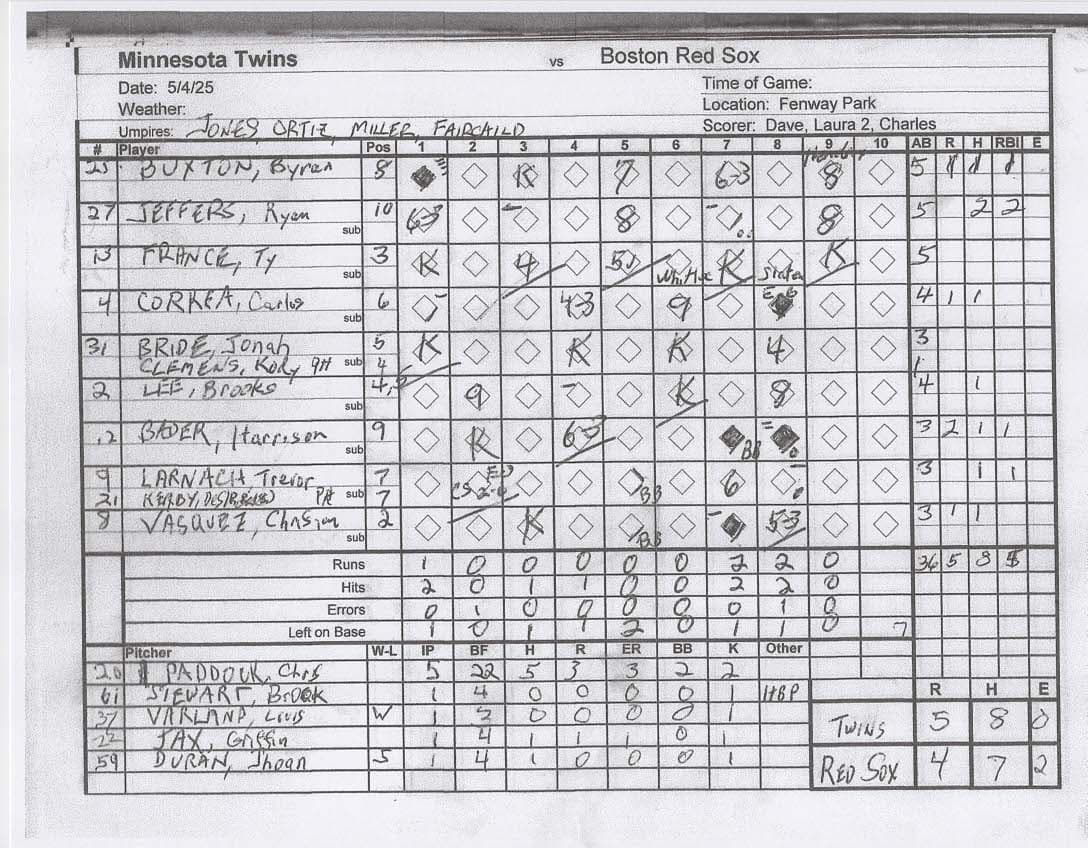 Minnesota Twins vs Boston Red Sox
Date: 5/4/25 Time of Game:
Weather: Location: Fenway Park
Umpires: JONES, ORTIZ, MILLER, FAIRCHILD Scorer: Dave, Laura 2, Charles
# Player Pos 1 2 3 4 5 6 7 8 9 10 AB R H RBI E
25 BUXTON, Byron 8 K 7 6-3 8 5 1 1 1
27 JEFFERS, Ryan sub 10 6-3 8 8 5 2 2
13 FRANCE, Ty sub 3 K 4 K K 5
4 CORREA, Carlos sub 6 4-3 9 4 1 1
31 BRIDE, Jonah 5 K K K 4 3
CLEMENS, Kody PH sub 4 1
2 LEE, Brooks sub 4,5 9 K 8 4 1
12 BADER, Harrison sub 9 K 6-3 BB 3 2 1 1
9 LARNACH, Trevor 7 CS 2-6 BB 6 3 1 1
21 PH sub 7
8 VASQUEZ, Chrisian sub 2 K BB 5-3 3 1 1
Runs 1 0 0 0 0 0 2 2 0 36 5 8 5
Hits 2 0 1 1 0 0 2 2 0
Errors 0 1 0 0 0 0 0 1 0
Left on Base 1 0 1 1 2 0 1 1 0 7
Pitcher W-L IP BF H R ER BB K Other
20 PADDOCK, Chris 5 22 5 3 3 2 2
61 STEWART, Brock 1 4 0 0 0 0 1 HBP
R H E
37 VARLAND, Louis W 1 0 0 0 0 1
TWINS 5 8 0
22 JAX, Griffin 1 4 1 1 1 0 1
59 DURAN, Jhoan S 1 4 1 0 0 0 1
RED SOX 4 7 2